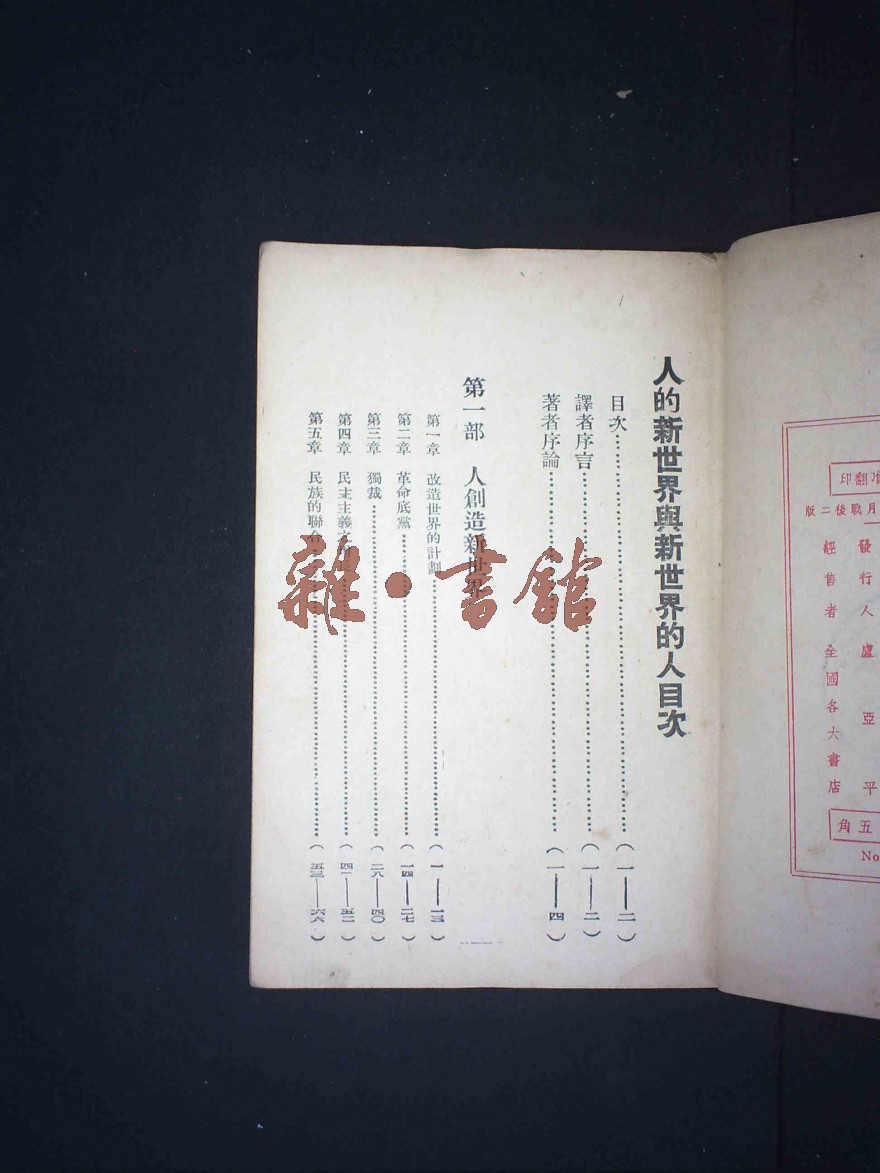 人的新世界與新世界的人目次
目次(一—二)
譯者序言(一—二)
著者序論(一—四)
第一部 人創造新世界
第一章 改造世界的計劃(一—一三)
第二章 革命底黨(一四—二七)
第三章 獨裁(二八—四〇)
第四章 民主主義(四一—五二)
第五章 民族的聯合(五三—六六)
雜·書館
翻印
月戰後二版
發行人 盧亞平
經售者 全國各大書店
五角
No